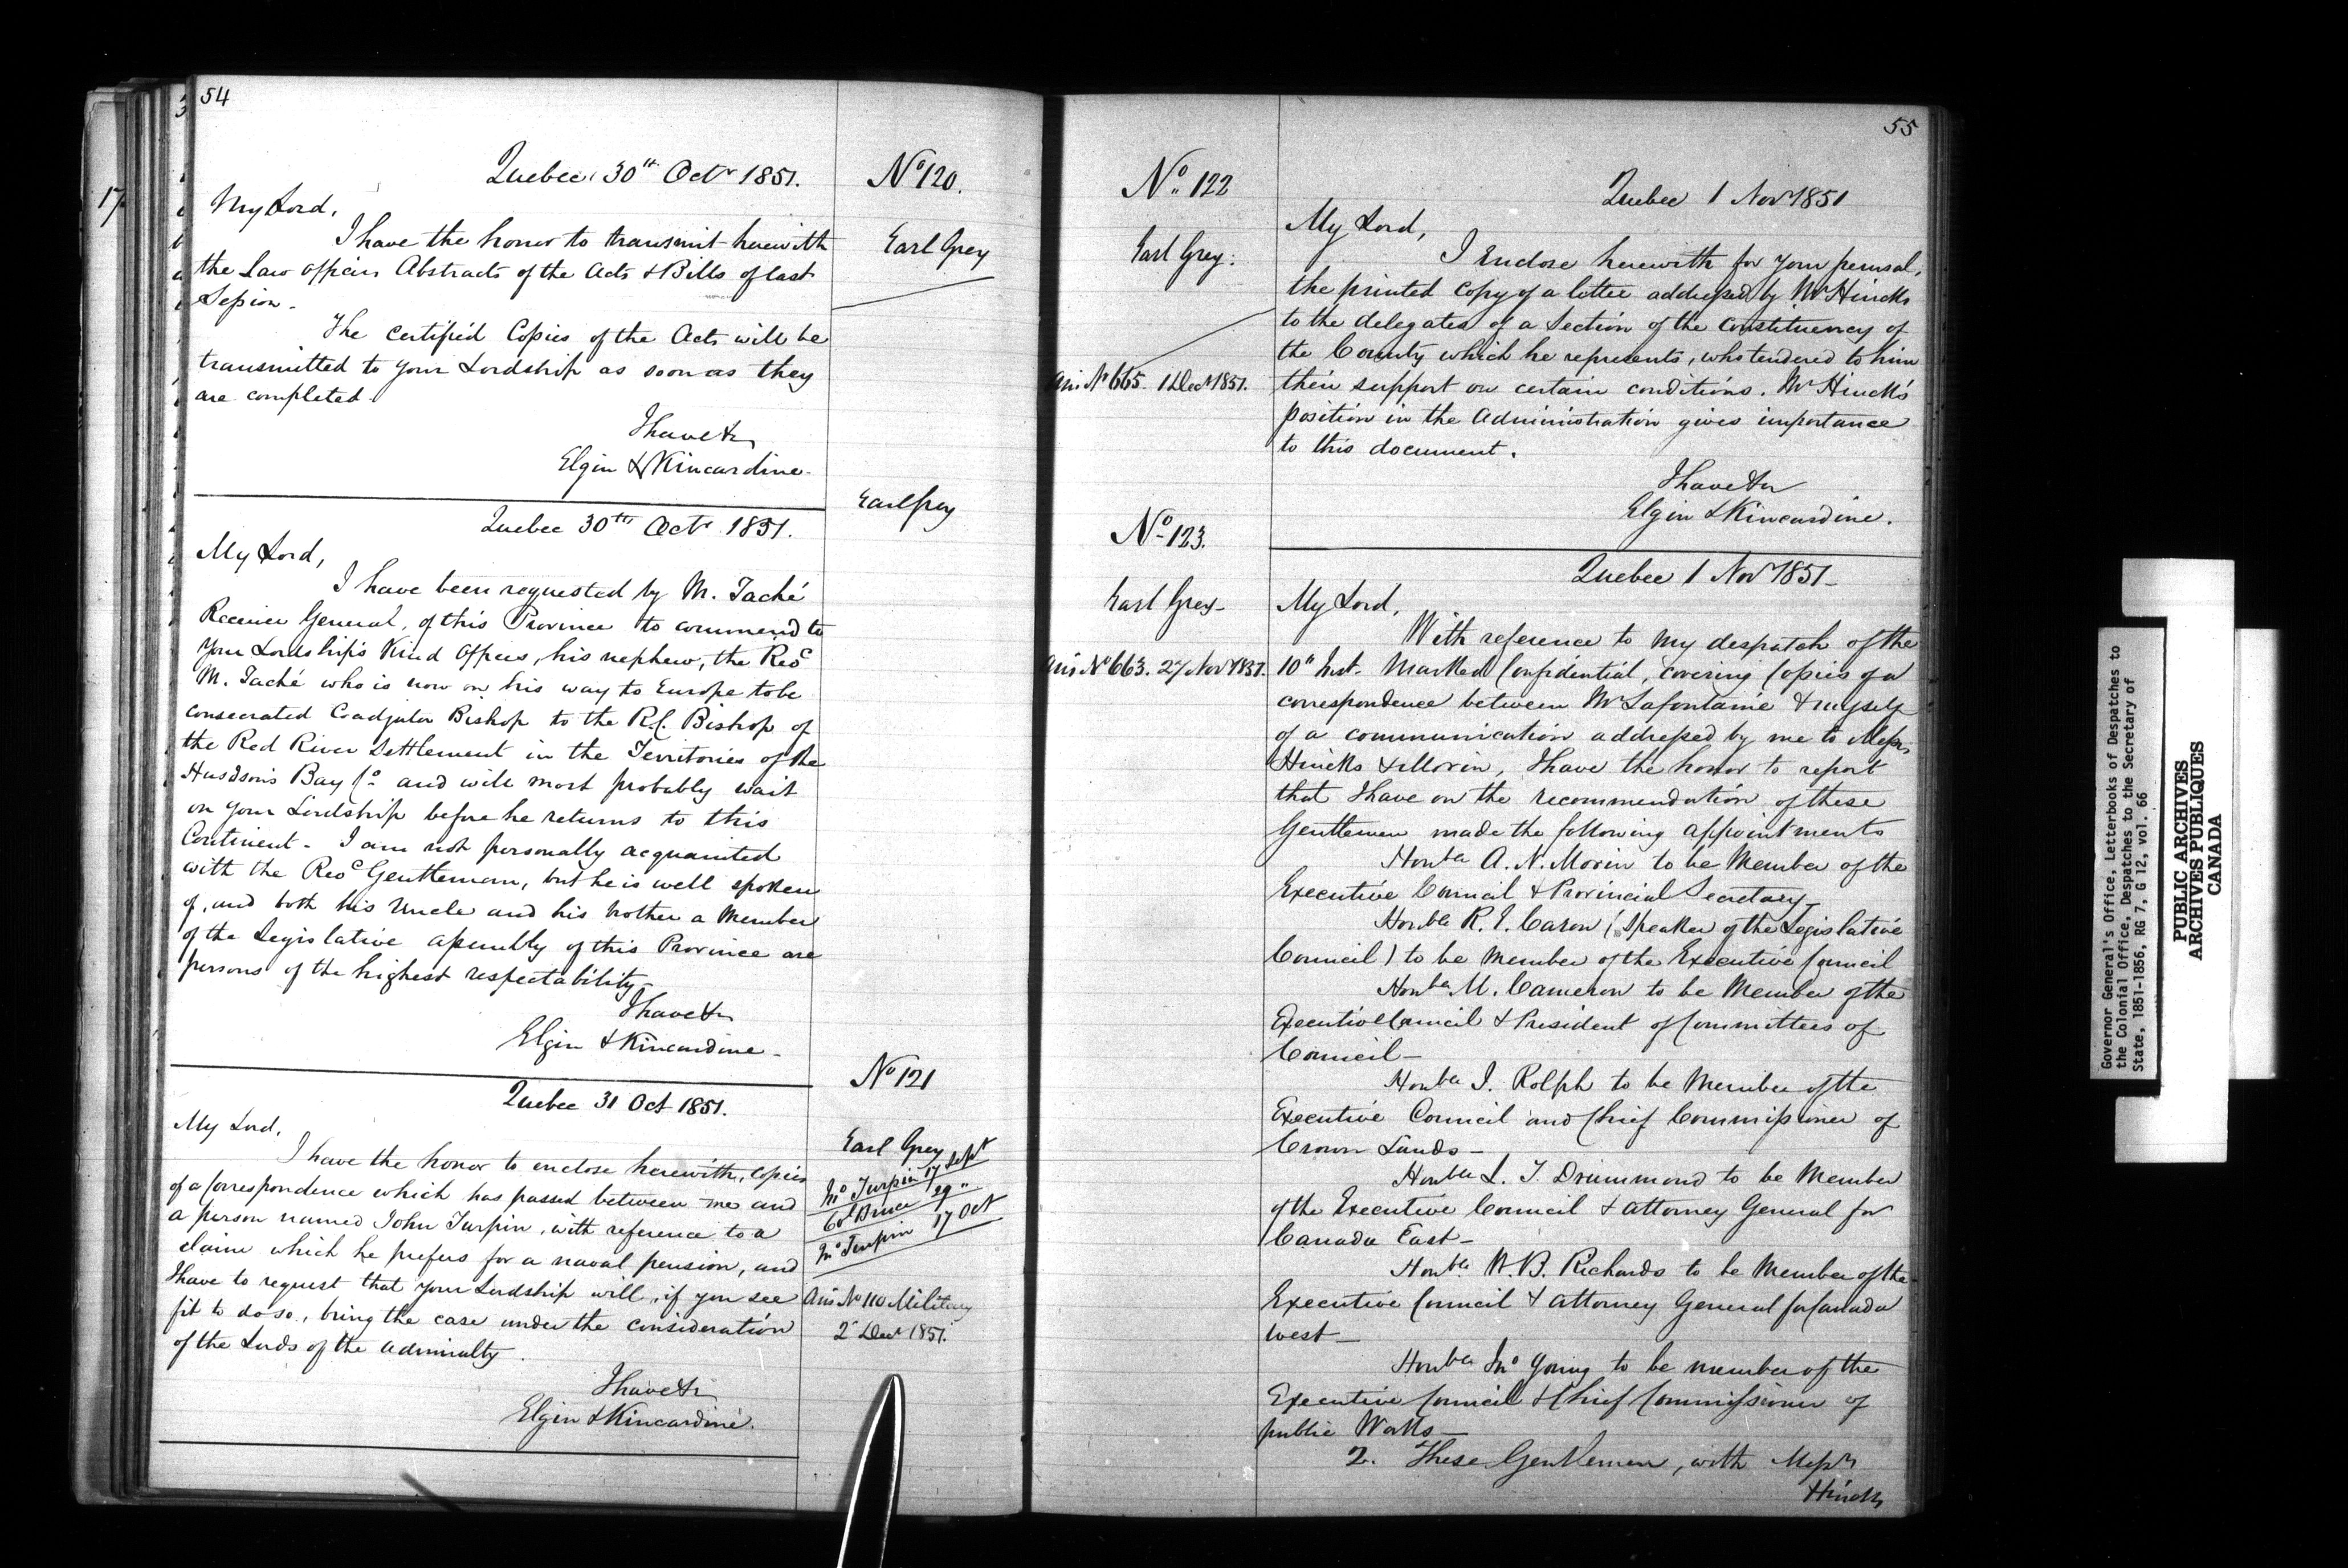 54
Quebec 30th Octr 1851.
No 120.
My Lord,
Earl Grey
I have the honor to transmit herewith
the Law officers Abstracts of the Acts & Bills of last
Session -
The certified Copies of the Acts will be
transmitted to your Lordship as soon as they
are completed.
I have &c
Elgin & Kincardine -
Quebec 30th Octr 1851.
Earl Grey
My Lord,
I have been requested by M. Taché
Receiver General, of this Province to commend to
your Lordship's Kind Offices, his nephew, the Revd
M. Taché who is now on his way to Europe to be
consecrated Coadjutor Bishop to the R.C. Bishop of
the Red River Settlement in the Territories of the
Husdson's Bay Co and will most probably wait
on your Lordship before he returns to this
Continent - I am not personally acquainted
with the Revd Gentleman, but he is well spoken
of, and both his Uncle and his brother a Member
of the Legislative assembly of this Province are
persons of the highest respectability -
I have &c
Elgin & Kincardine -
No 121
Quebec 31 Oct 1851.
My Lord,
Earl Grey
I have the honor to enclose herewith, copies
of a Correspondence which has passed between me and
a person named John Turpin, with reference to a
claim which he prefers for a naval pension, and
I have to request that your Lordship will, if you see
fit to do so, bring the case under the consideration
of the Lords of the Admiralty.
Jno Turpin 17 Sept
Col Bruce 29 "
Jno Turpin 17 Oct
Ans No 110 Military
2 Decr 1851.
I have &c
Elgin & Kincardine.
55
No. 122
Quebec 1 Novr 1851
My Lord,
Earl Grey.
I Enclose herewith for your perusal,
the printed copy of a letter addressed by Mr Hincks
to the delegates of a Section of the Constituency of
the County which he represents, who tendered to him
Ans. No 665. 1 Decr 1851.
their support on certain conditions. Mr Hincks'
position in the Administration gives importance
to this document.
I have &c
Elgin & Kincardine.
No 123.
Quebec 1 Novr 1851 -
Earl Grey -
My Lord,
With reference to my despatch of the
Ans No 663. 27 Novr 1851.
10th Inst. Marked Confidential, covering Copies of a
correspondence between Mr Lafontaine & myself
of a communication addressed by me to Messrs
Hincks & Morin, I have the honor to report
that I have on the recommendation of these
Gentlemen made the following appointments
Honble A. N. Morin to be Member of the
Executive Council & Provincial Secretary -
Honble R. E. Caron (Speaker of the Legislative
Council) to be Member of the Executive Council
Honble M. Cameron to be Member of the
Executive Council & President of Committees of
Council -
Honble J. Rolph to be Member of the
Executive Council and Chief Commissioner of
Crown Lands -
Honble L. T. Drummond to be Member
of the Executive Council & Attorney General for
Canada East -
Honble W. B. Richards to be Member of the
Executive Council & Attorney General for Canada
West -
Honble Jno Young to be member of the
Executive Council & Chief Commissioner of
public Works -
2. These Gentlemen, with Messrs
Hincks
Governor General's Office, Letterbooks of Despatches to
the Colonial Office, Despatches to the Secretary of
State, 1851-1856, RG 7, G 12, vol. 66
PUBLIC ARCHIVES
ARCHIVES PUBLIQUES
CANADA